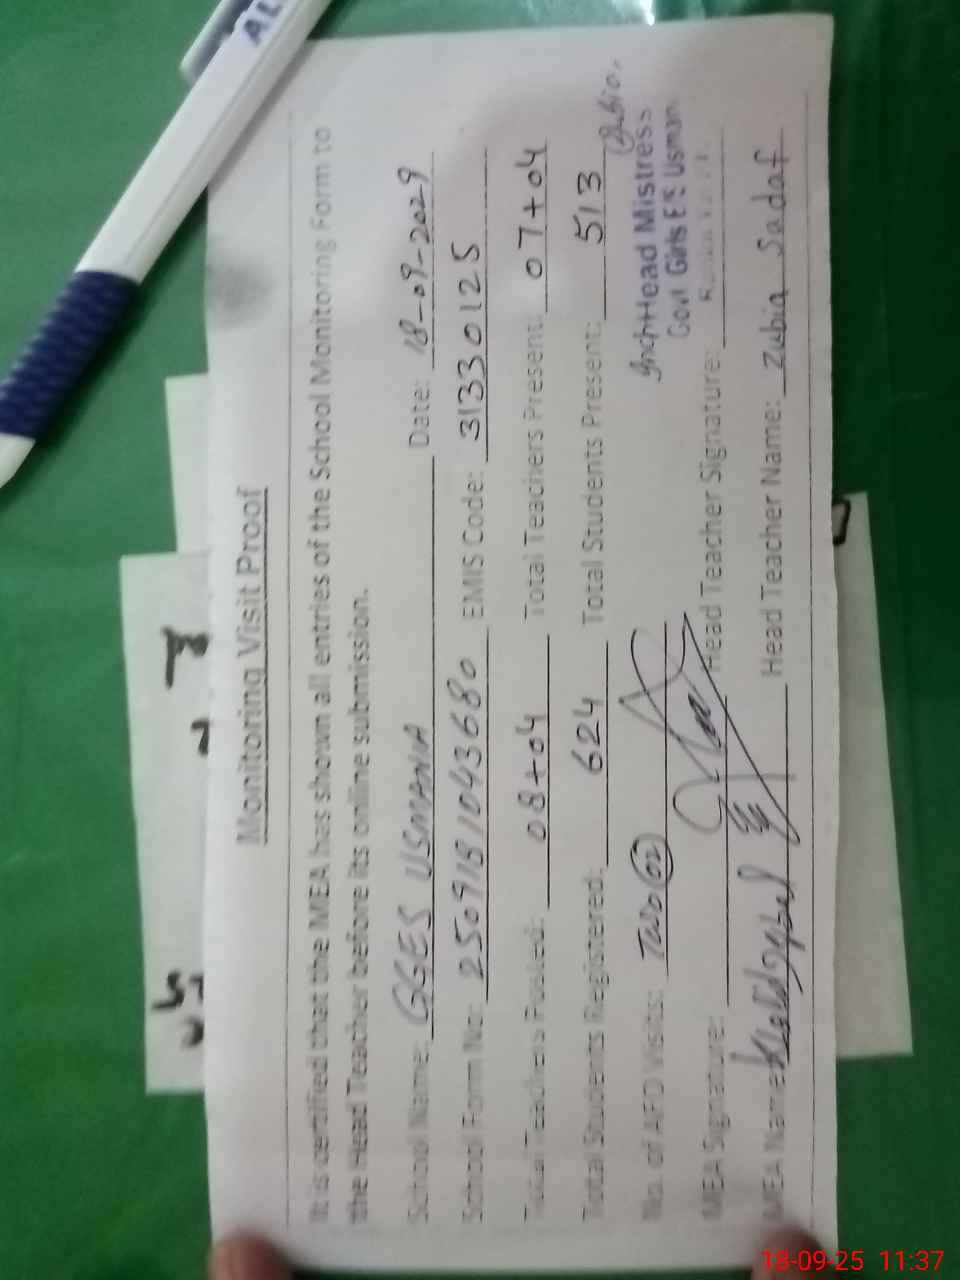 AL
Monitoring Visit Proof
It is certified that the MEA has shown all entries of the School Monitoring Form to
the Head Teacher before its online submission.
School Name: GGES USMANIA Date: 18-09-2029
School Form No: 2509181043680 EMIS Code: 31330125
Total Teachers Posted: 08+04 Total Teachers Present: 07+04
Total Students Registered: 624 Total Students Present: 513
No. of AEO Visits: Two (02)
Head Mistress
Govt Girls E/S Usman
MEA Signature: Head Teacher Signature:
MEA Name: Head Teacher Name: Zubia Sadaf
18-09-25 11:37